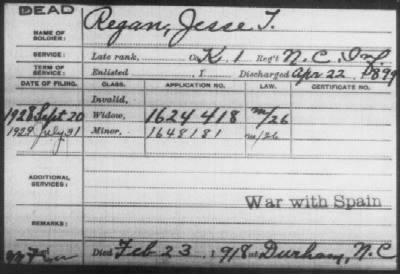 DEAD
NAME OF SOLDIER: Regan, Jesse T.
SERVICE: Late rank, Co. K, 1 Reg't N.C. Inf.
TERM OF SERVICE: Enlisted , 1 Discharged Apr 22, 1899
DATE OF FILING. CLASS. APPLICATION NO. LAW. CERTIFICATE NO.
Invalid,
1928 Sept 20 Widow, 1624418 m/26
1929 July 31 Minor, 1648181 m/26
ADDITIONAL SERVICES:
War with Spain
REMARKS:
Died Feb 23, 1918 at Durham, N.C.